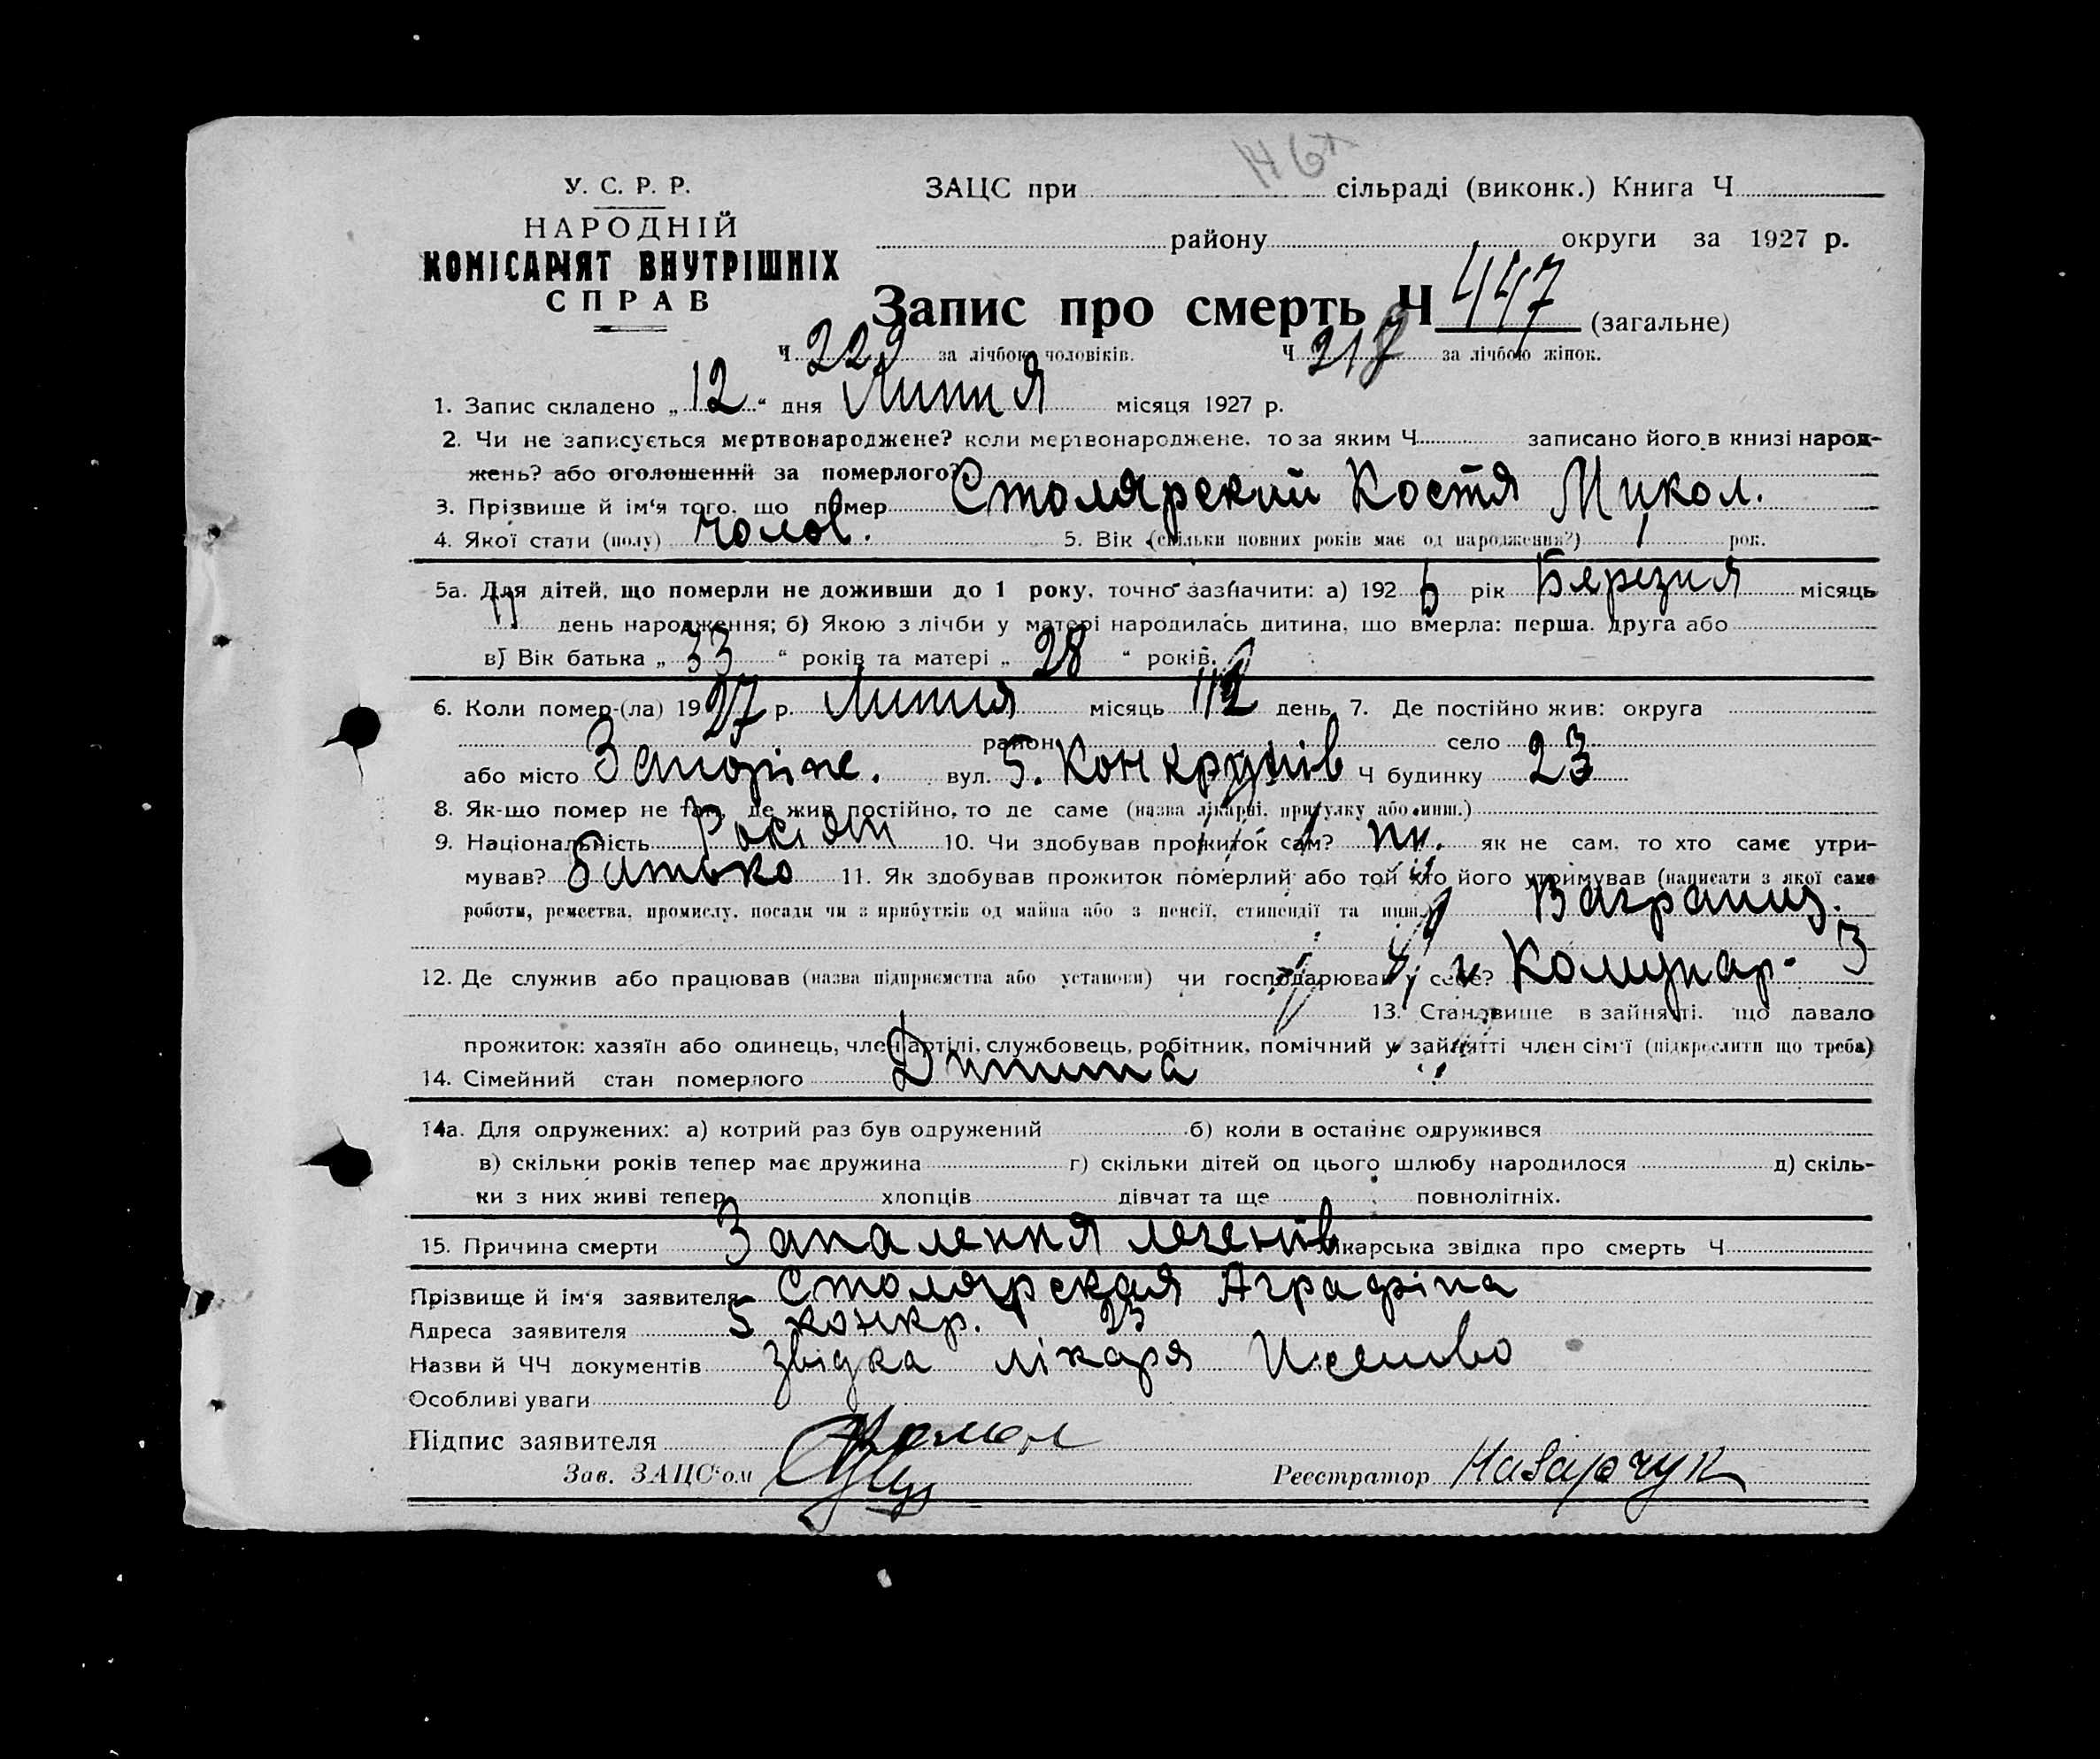 У. С. Р. Р.
НАРОДНІЙ
КОМІСАРІЯТ ВНУТРІШНІХ
СПРАВ
ЗАЦС при сільраді (виконк.) Книга Ч
району округи за 1927 р.
Запис про смерть Ч 447 (загальне)
Ч 229 за лічбою чоловіків. Ч 218 за лічбою жінок.
1. Запис складено „ 12 “ дня Липня місяця 1927 р.
2. Чи не записується мертвонароджене? коли мертвонароджене, то за яким Ч записано його в книзі народ-
жень? або оголошений за померлого?
3. Прізвище й ім'я того, що помер Столярский Костя Микол.
4. Якої стати (полу) чолов. 5. Вік (скільки повних років має од народження?) 1 рок.
5а. Для дітей, що померли не доживши до 1 року, точно зазначити: а) 192 6 рік Березня місяць
11 день народження; б) Якою з лічби у матері народилась дитина, що вмерла: перша, друга або
в) Вік батька „ 33 “ років та матері „ 28 “ років.
6. Коли помер-(ла) 19 27 р. Липня місяць день 7. Де постійно жив: округа
район село
або місто Запоріже. вул. 5. Ч будинку 23
8. Як-що помер не там, де жив постійно, то де саме (назва лікарні, притулку або инш.)
9. Національність Росіян 10. Чи здобував прожиток сам? ні. як не сам, то хто саме утри-
мував? батько 11. Як здобував прожиток померлий або той хто його утримував (написати з якої саме
роботи, ремества, промислу, посади чи з прибутків од майна або з пенсії, стипендії та инш.)
12. Де служив або працював (назва підприємства або установи) чи господарював у себе? Комунар.
13. Становише в зайнятті, що давало
прожиток: хазяїн або одинець, член артілі, службовець, робітник, помічний у зайнятті член сім'ї (підкреслити що треба)
14. Сімейний стан померлого Дитина
14а. Для одружених: а) котрий раз був одружений б) коли в останнє одружився
в) скільки років тепер має дружина г) скільки дітей од цього шлюбу народилося д) скіль-
ки з них живі тепер хлопців дівчат та ще повнолітніх.
15. Причина смерти Запалення легенів Лікарська звідка про смерть Ч
Прізвище й ім'я заявителя Столярская Аграфіна
Адреса заявителя 5 конкр. 23
Назви й ЧЧ документів Звідка лікаря
Особливі уваги
Підпис заявителя
Зав. ЗАЦС'ом Реєстратор Назарчук